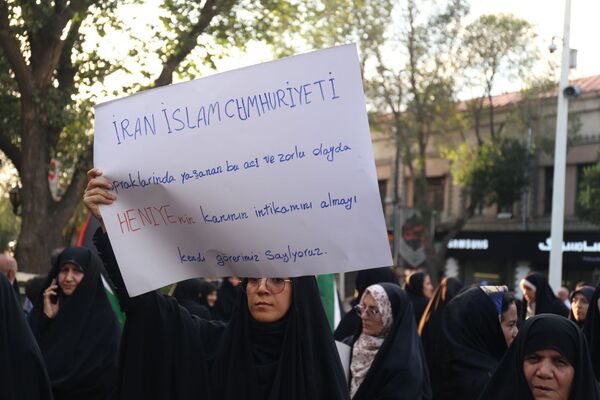 İRAN İSLAM CUMHURİYETİ
praklarında yaşanan bu acı ve zorlu olayda
HENİYE'nin kanının intikamını almayı
kendi görerimiz Sayıyoruz.
SAMSUNG
سامسونگ